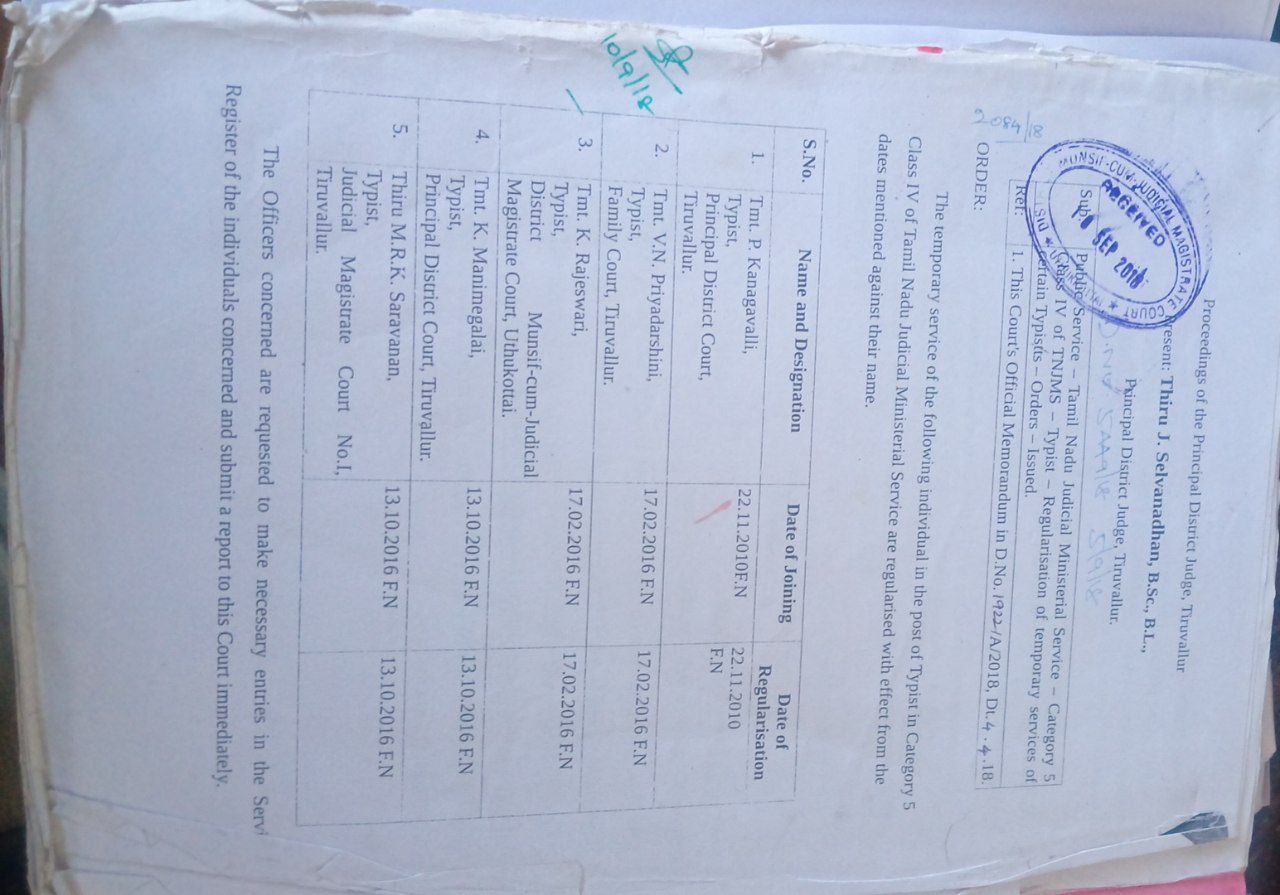 Proceedings of the Principal District Judge, Tiruvallur
resent: Thiru J. Selvanadhan, B.Sc., B.L.,
Principal District Judge, Tiruvallur.
5/9/18
MUNSIF-CUM-JUDICIAL MAGISTRATE COURT
RECEIVED
SEP 2018
Sub: Public Service – Tamil Nadu Judicial Ministerial Service – Category 5
Class IV of TNJMS – Typist – Regularisation of temporary services of
certain Typists – Orders – Issued.
Ref: 1. This Court's Official Memorandum in D.No.1922/A/2018, Dt.4.4.18.
2084/18
ORDER:
The temporary service of the following individual in the post of Typist in Category 5
Class IV of Tamil Nadu Judicial Ministerial Service are regularised with effect from the
dates mentioned against their name.
S.No. Name and Designation Date of Joining Date of
Regularisation
1. Tmt. P. Kanagavalli, 22.11.2010F.N 22.11.2010
Typist, F.N
Principal District Court,
Tiruvallur.
2. Tmt. V.N. Priyadarshini, 17.02.2016 F.N 17.02.2016 F.N
Typist,
Family Court, Tiruvallur.
3. Tmt. K. Rajeswari, 17.02.2016 F.N 17.02.2016 F.N
Typist,
District Munsif-cum-Judicial
Magistrate Court, Uthukottai.
4. Tmt. K. Manimegalai, 13.10.2016 F.N 13.10.2016 F.N
Typist,
Principal District Court, Tiruvallur.
5. Thiru M.R.K. Saravanan, 13.10.2016 F.N 13.10.2016 F.N
Typist,
Judicial Magistrate Court No.I,
Tiruvallur.
10/9/18
The Officers concerned are requested to make necessary entries in the Servi
Register of the individuals concerned and submit a report to this Court immediately.